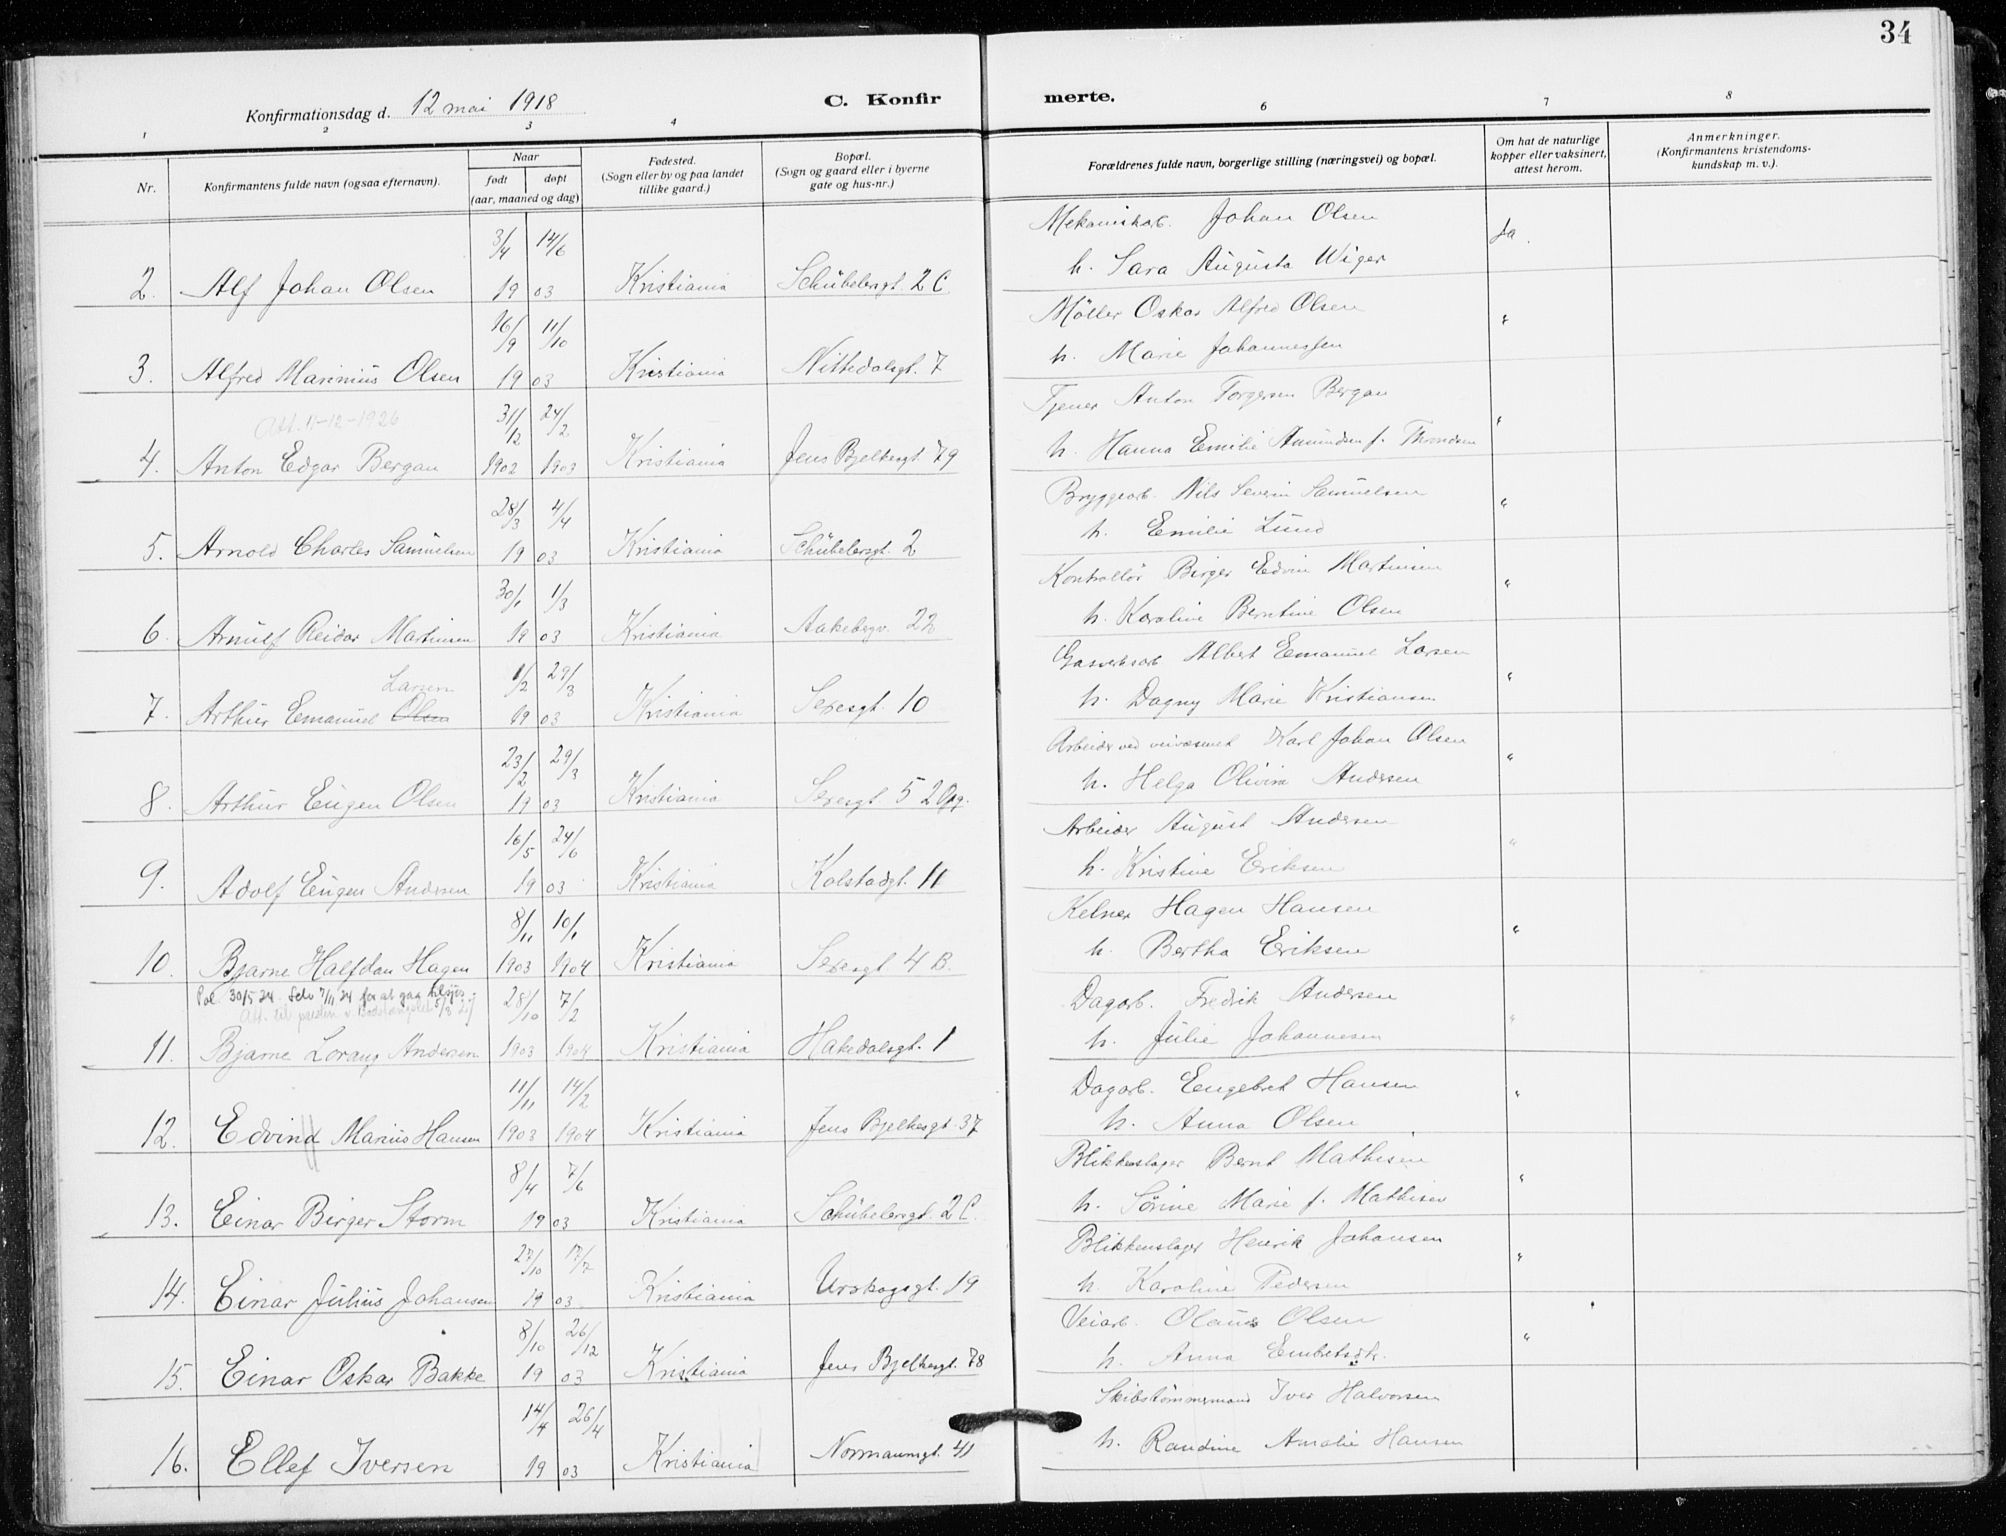 34
Konfirmationsdag d. 12 mai 1918
C. Konfirmerte.
1 2 3 4 6 7 8
Nr.
Konfirmantens fulde navn (ogsaa efternavn).
Naar
født
døpt
(aar, maaned og dag)
Fødested.
(Sogn eller by og paa landet
tillike gaard.)
Bopæl.
(Sogn og gaard eller i byerne
gate og hus-nr.)
Forældrenes fulde navn, borgerlige stilling (næringsvei) og bopæl.
Om hat de naturlige
kopper eller vaksinert,
attest herom.
Anmerkninger.
(Konfirmantens kristendoms-
kundskap m. v.).
3/4 14/6 Mekanikarb. Johan Olsen Ja.
2. Alf Johan Olsen 19 03 Kristiania Schübelersgt. 2 C. h. Sara Augusta Wiger
16/9 11/10 Møller Oskar Alfred Olsen "
3. Alfred Marinius Olsen 19 03 Kristiania Nittedalsgt. 7 h. Marie Johannessen
Att. 11-12-1926 31/12 24/2 Tjener Anton Torgersen Bergan "
4. Anton Edgar Bergan 1902 1903 Kristiania Jens Bjelkesgt. 79 h. Hanna Emilie Amundsen f. Thondsen
28/3 4/4 Bryggearb. Nils Severin Samuelsen "
5. Arnold Charles Samuelsen 19 03 Kristiania Schübelersgt. 2 h. Emilie Lund
30/1 1/3 Kontrollør Birger Edvin Martinsen "
6. Arnulf Reidar Martinsen 19 03 Kristiania Aakebergv. 22 h. Karoline Berntine Olsen
Larsen 1/2 29/3 Gasverksarb. Albert Emanuel Larsen "
7. Arthur Emanuel Olsen 19 03 Kristiania Sexesgt. 10 h. Dagny Marie Kristiansen
23/2 29/3 Arbeider ved veivæsenet Karl Johan Olsen "
8. Arthur Eugen Olsen 19 03 Kristiania Sexesgt. 5 2 Opg. h. Helga Olivia Andersen
16/5 24/6 Arbeider August Andersen "
9. Adolf Eugen Andersen 19 03 Kristiania Kolstadgt. 11 h. Kristine Eriksen
8/11 10/1 Kelner Hagen Hansen "
10. Bjarne Halfdan Hagen 1903 1904 Kristiania Sexesgt 4 B. h. Bertha Eriksen
Pol. 30/5 24. Selv 7/11 24 for at gaa tilsjøs.
Att. til presten v. Botsfængslet 5/8 27
28/10 7/2 Dagarb. Fredrik Andersen "
11. Bjarne Lorang Andersen 1903 1904 Kristiania Hakedalsgt. 1 h. Julie Johannesen
11/11 14/2 Dagarb. Engebret Hansen "
12. Edvind Marius Hansen 1903 1904 Kristiania Jens Bjelkesgt. 37 h. Anna Olsen
8/4 7/6 Blikkenslager Bernt Mathisen "
13. Einar Birger Storm 19 03 Kristiania Schübelersgt. 2 C. h. Sørine Marie f. Mathisen
27/10 17/7 Blikkenslager Henrik Johansen "
14. Einar Julius Johansen 19 03 Kristiania Urskogsgt. 19 h. Karoline Pedersen
8/10 26/12 Veiarb. Olaus Olsen "
15. Einar Oskar Bakke 19 03 Kristiania Jens Bjelkesgt. 78 h. Anna Embetsdtr.
14/4 26/4 Skibstømmermand Iver Halvorsen
16. Ellef Iversen 19 03 Kristiania Normannsgt. 41 h. Randine Amalie Hansen